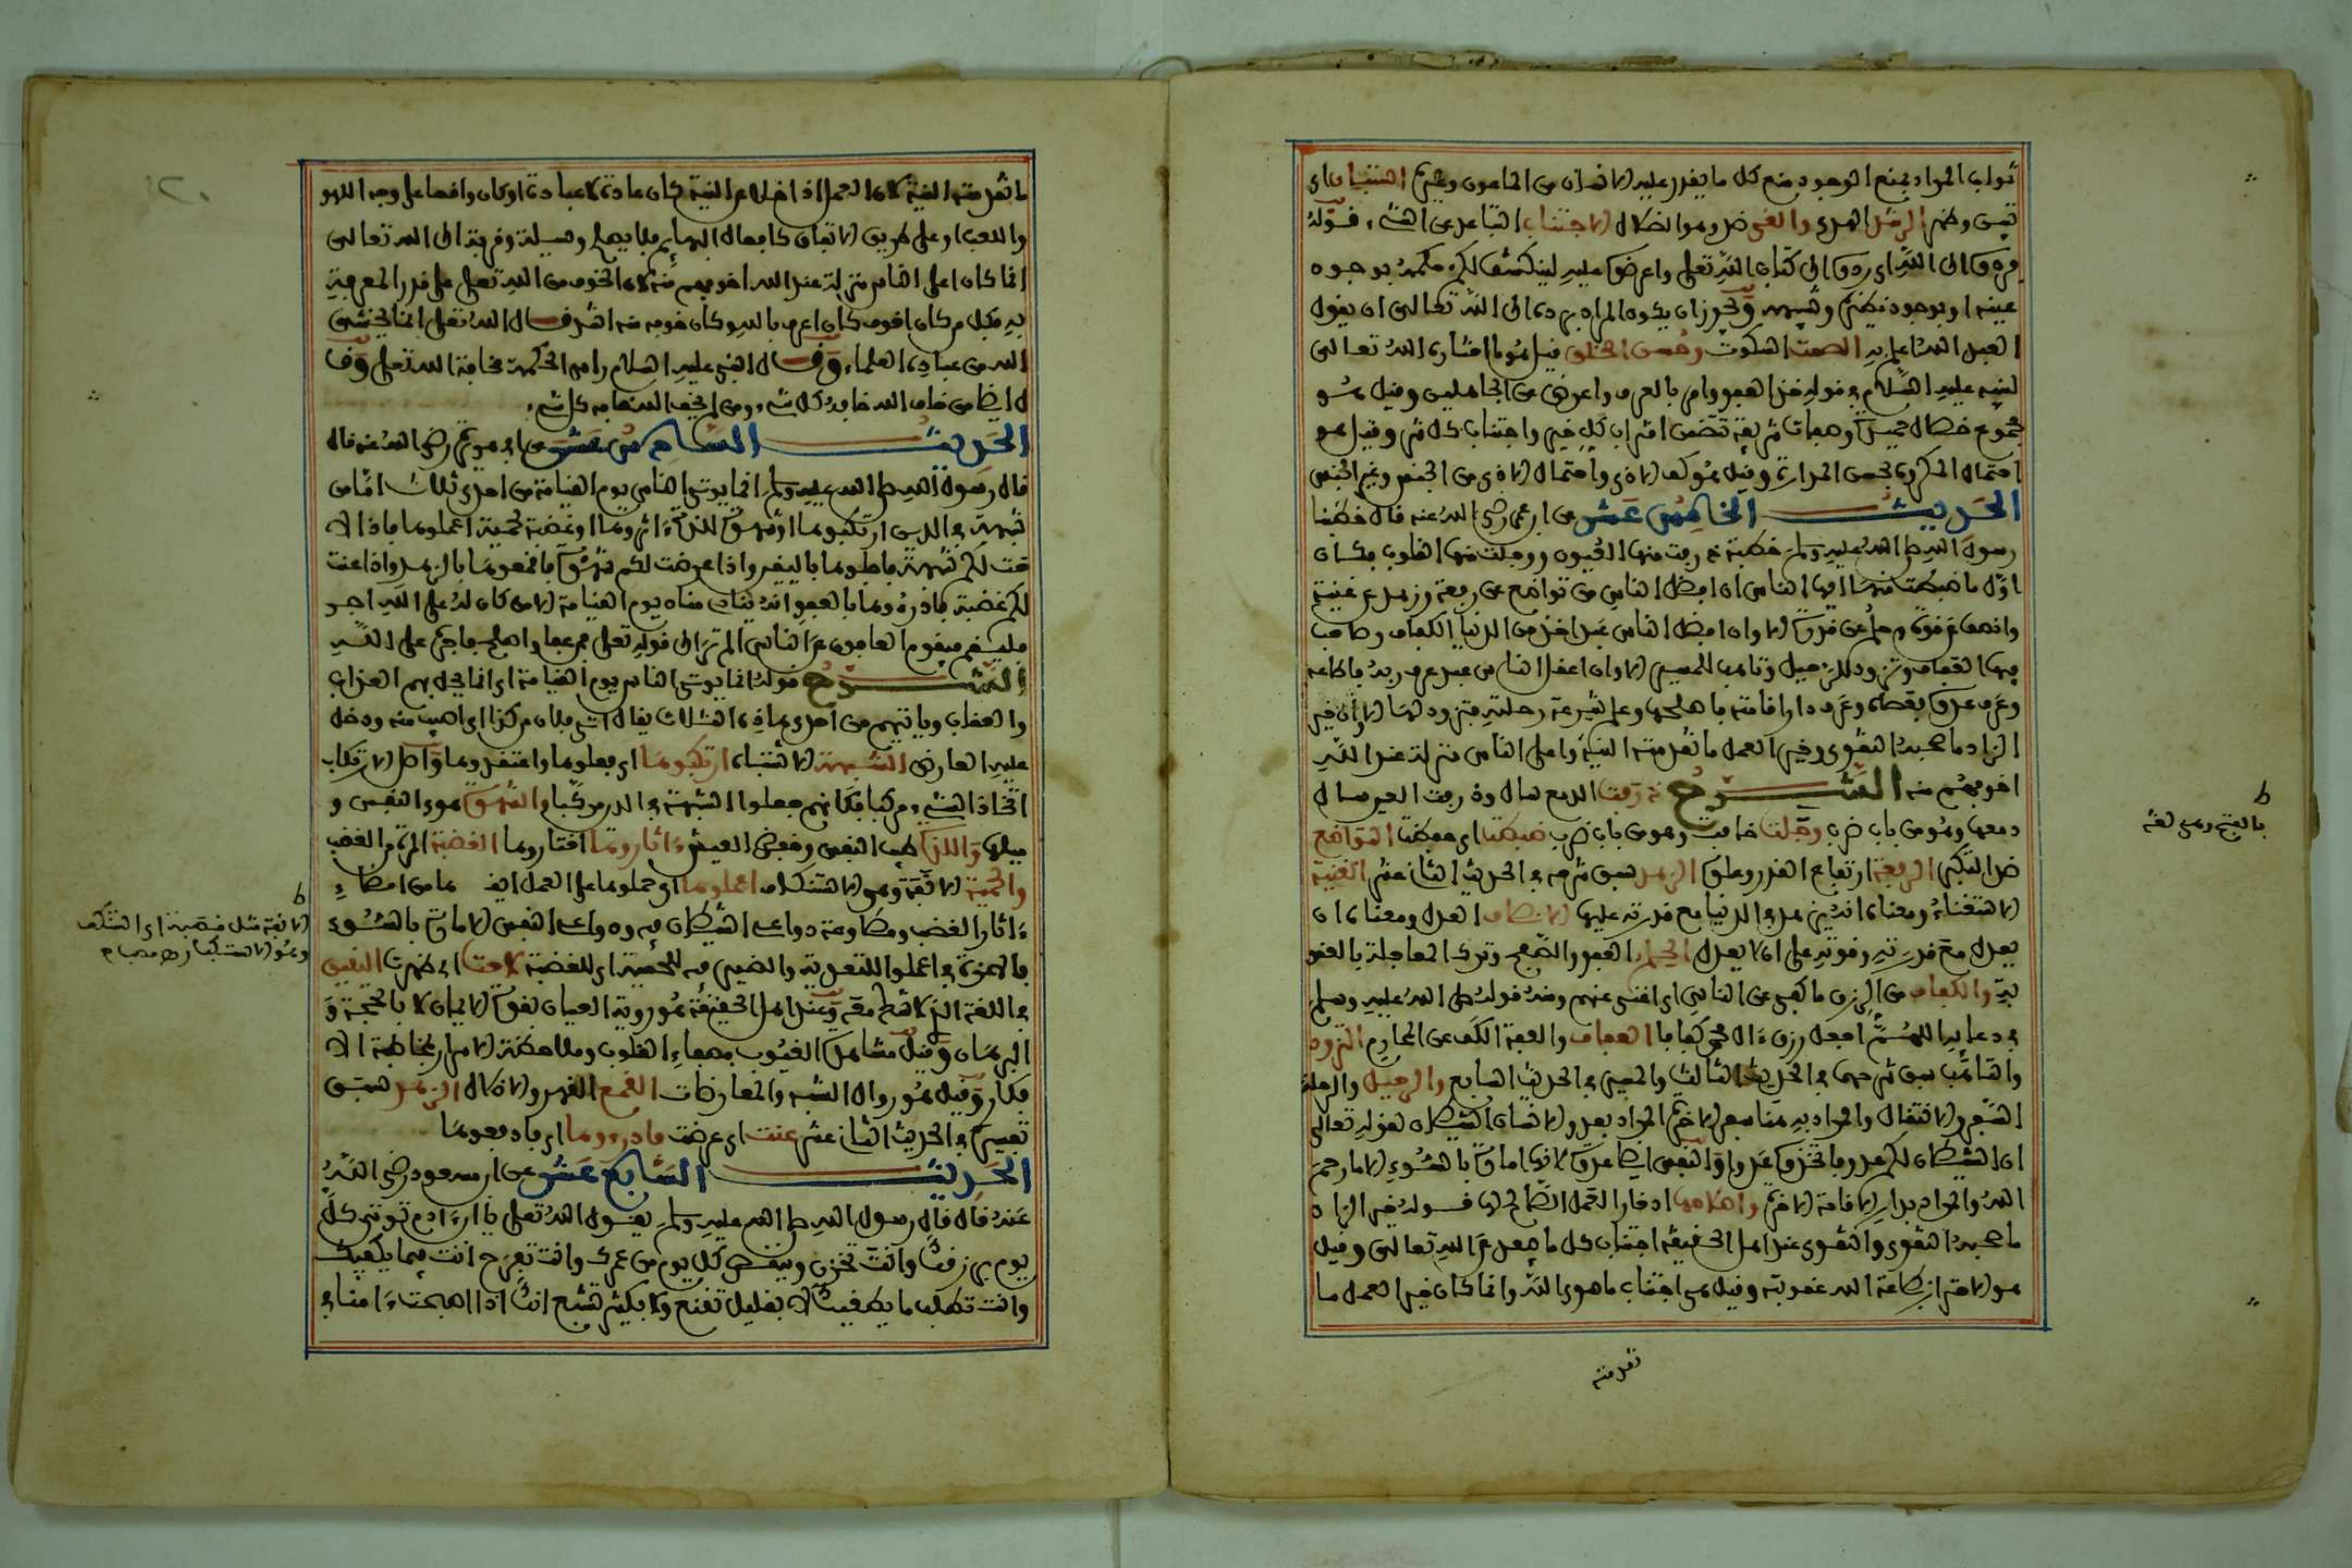 ثواب الجواد يمنع الموجود منع كل ما يقدر عليه الانسان من الماعون وغيره استبان اي
تبين وظهر الرشد الهدى والغي ضد وهو الضلال الاجتناب التباعد عن الشيء قوله
فردوه الى الله اي ردوه الى كتاب الله تعلى واعرضوه عليه لينكشف لكم حكمه بوجود
عينه او بوجود نظيره وشبهه ويجوز ان يكون المراد برده الى الله تعالى ان يقول
العبد الله اعلم به الصمت السكوت وحسن الخلق قيل هو ما اشار به الله تعالى
لنبيه عليه السلام في قوله خذ العفو وامر بالعرف واعرض عن الجاهلين وقيل هو
مجموع خصال حميدة وصفات شريفة تتضمن اكتساب كل خير واجتناب كل شر وقيل هو
احتمال المكروه بحسن المداراة وقيل هو كف الاذى واحتمال الاذى من الجنس وغير الجنس
الحديث الخامس عشر عن ابن عمر رضي الله عنه قال خطبنا
رسول الله صلى الله عليه وسلم خطبة ذرفت منها العيون ووجلت منها القلوب فكان
اول ما ضبطت منها ايها الناس ان افضل الناس من تواضع عن رفعة وزهد عن غنية
وانصف عن قوة وحلم عن قدرة الا وان افضل الناس عبد اخذ من الدنيا الكفاف وصاحب
فيها العفاف وتزود للرحيل وتاهب للمسير الا وان اعقل الناس عبد عرف ربه فاطاعه
وعرف عدوه فعصاه وعرف دار اقامته فاصلحها وعلم سرعة رحلته فتزود لها الا وان خير
الزاد ما صحبه التقوى وخير العمل ما تقدمته النية واعلى الناس منزلة عند الله
اخوفهم منه الشرح ذرفت الدمع سال وذرفت العين سال
دمعها وهو من باب ضرب وجلت خافت وهو من باب ضبطت اي حفظت التواضع
ضد التكبر الرفعة ارتفاع القدر وعلوه الزهد سبق شرحه في الحديث الثاني عشر الغنية
الاستغناء ومعناه انه يزهد في الدنيا مع قدرته عليها الانصاف العدل ومعناه ان
يعدل مع قدرته وقوته على ان لا يعدل الحلم العفو والصفح وترك المعاجلة بالعقو
بة والكفاف من الرزق ما كفى عن الناس اي اغنى عنهم ومنه قوله صلى الله عليه وسلم
في دعايه اللهم اجعل رزق ءال محمد كفافا العفاف والعفة الكف عن المحارم التزود
والتاهب سبق شرحهما في الحديث الثالث والمسير في الحديث السابع والرحيل والرحلة
السفر والانتقال والمراد به هنا سفر الاخرة المراد بعدو الانسان الشيطان لقوله تعالى
ان الشيطان لكم عدو فاتخذوه عدوا والنفس ايضا عدوه لانها امارة بالسوء الا ما رحم
الله والمراد بدار الاقامة الاخرة واصلاحها ادخار العمل الصالح لها قوله خير الزاد
ما صحبه التقوى والتقوى عند اهل الحقيقة اجتناب كل ما يبعد عن الله تعالى وقيل
هو الاحتراز بطاعة الله عن عقوبته وقيل هو اجتناب ما سوى الله وانما كان خير العمل ما
تقدمته
ط
بالفتح وهي لغة
ما تقدمته النية لان العمل اذا خلا عن النية كان عادة لا عبادة او كان واقعا على وجه اللهو
واللعب او على طريق الاتفاق كافعال البهايم فلا يصلح وسيلة وقربة الى الله تعالى
انما كان اعلى الناس منزلة عند الله اخوفهم منه لان الخوف من الله تعلى على قدر المعرفة
به فكل من كان اخوف كان اعرف بالله وكان خوفه منه اشد قال الله تعلى انما يخشى
الله من عباده العلماء وقال النبي عليه السلام راس الحكمة مخافة الله تعلى وقا
ل ايضا من خاف الله خافه كل شيء ومن لم يخف الله خاف من كل شيء
الحديث السادس عشر عن ابي هريرة رضي الله عنه قال
قال رسول الله صلى الله عليه وسلم انما يوتى الناس يوم القيامة من احدى ثلاث اما من
شبهة في الدين ارتكبوها او شهوة للذة ءاثروها او غضبة لحمية اعملوها فاذا لا
حت لكم شبهة فاجلوها باليقين واذا عرضت لكم شهوة فاقمعوها بالزهد واذا عنت
لكم غضبة فادرءوها بالعفو انه ينادي مناد يوم القيامة الا من كان له على الله اجر
فليقم فيقوم العافون عن الناس الم تر الى قوله تعلى فمن عفا واصلح فاجره على الله
الشرح قوله انما يوتى الناس يوم القيامة اي انما يحل بهم العذاب
والعقاب وياتيهم من احدى هاذه الثلاث يقال اتي فلان من كذا اي اصيب منه ودخل
عليه العارض الشبهة الاشتباه ارتكبوها اي فعلوها واعتقدوها واصل الارتكاب
اتخاذ الشيء مركبا فكانهم جعلوا الشبهة في الدين مركبا والشهوة هوى النفس و
ميلها واللذة طيب النفس وخفض العيش ءاثروها اختاروها الغضبة المرة من الغضب
والحمية الانفة وهو الاستنكاف اعملوها اي حملوها على العمل اي هما من امضاء
ءاثار الغضب ومطاوعة دواعي الشيطان فيه ودواعي النفس الامارة بالسوء
فالهمزة في اعملوا للتعدية والضمير فيه للحمية اي للغضبة لاحت اي ظهرت اليقين
في اللغة الذي لا شك معه وعند اهل الحقيقة هو روية العيان بقوة الايمان لا بالحجة و
البرهان وقيل مشاهدة الغيوب بصفاء القلوب وملاحظة الاسرار بمخاطبة الا
فكار وقيل هو زوال الشبه والمعارضات القمع القهر والاذلال الزهد سبق
تفسيره في الحديث الثاني عشر عنت اي عرضت فادرءوها اي فادفعوها
الحديث السابع عشر عن ابن مسعود رضي الله
عنه قال قال رسول الله صلى الله عليه وسلم يقول الله تعلى يا ابن ءادم توتى كل
يوم برزقك وانت تحزن وينقص كل يوم من عمرك وانت تفرح انت فيما يكفيك
وانت تطلب ما يطغيك لا بقليل تقنع ولا بكثير تشبع انك اذا اصبحت ءامنا في
ط
الانفة مثل قصبة اي التنكف
وهو الاستكبار